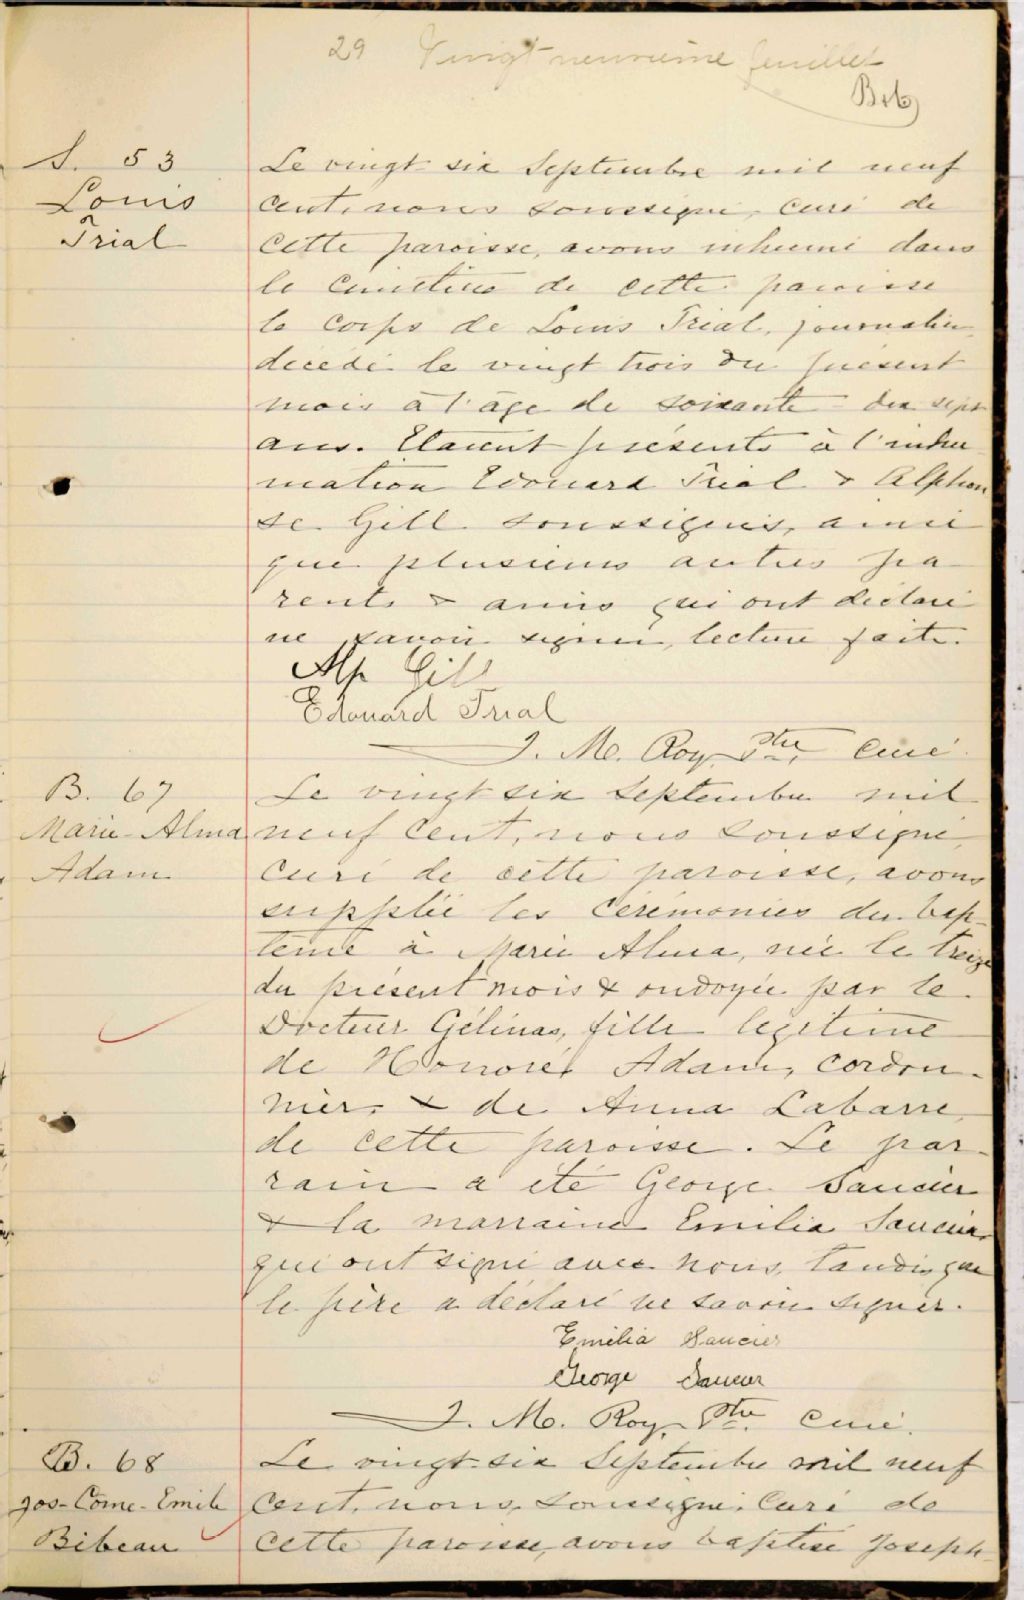 29 Vingt neuvième feuillet
S. 53
Louis
Trial
Le vingt six Septembre mil neuf
cent, nous soussigné, curé de
cette paroisse, avons inhumé dans
le cimetière de cette paroisse
le corps de Louis Trial, journalier,
décédé le vingt trois du présent
mois à l'âge de soixante-dix sept
ans. Etaient présents à l'inhu
mation Edouard Trial & Alphon
se Gill soussignés, ainsi
que plusieurs autres pa
rents & amis qui ont déclaré
ne savoir signer, lecture faite.
Alp Gill
Edouard Trial
J. M. Roy Ptre Curé.
B. 67
Marie-Alma
Adam
Le vingt six Septembre mil
neuf cent, nous soussigné,
curé de cette paroisse, avons
supplée les cérémonies du bap-
tème à Marie Alma, née le treize
du présent mois & ondoyée par le
Docteur Gélinas, fille légitime
de Honoré Adam, cordon-
nier, & de Anna Labarre,
de cette paroisse. Le par-
rain a été George Saucier
& la marraine Emilia Saucier
qui ont signé avec nous, tandis que
le père a déclaré ne savoir signer.
Emilia Saucier
George Saucier
J. M. Roy, Ptre. Curé.
B. 68
Jos-Come-Emile
Bibeau
Le vingt-six Septembre mil neuf
cent, nous, soussigné, Curé de
cette paroisse, avons baptisé Joseph-